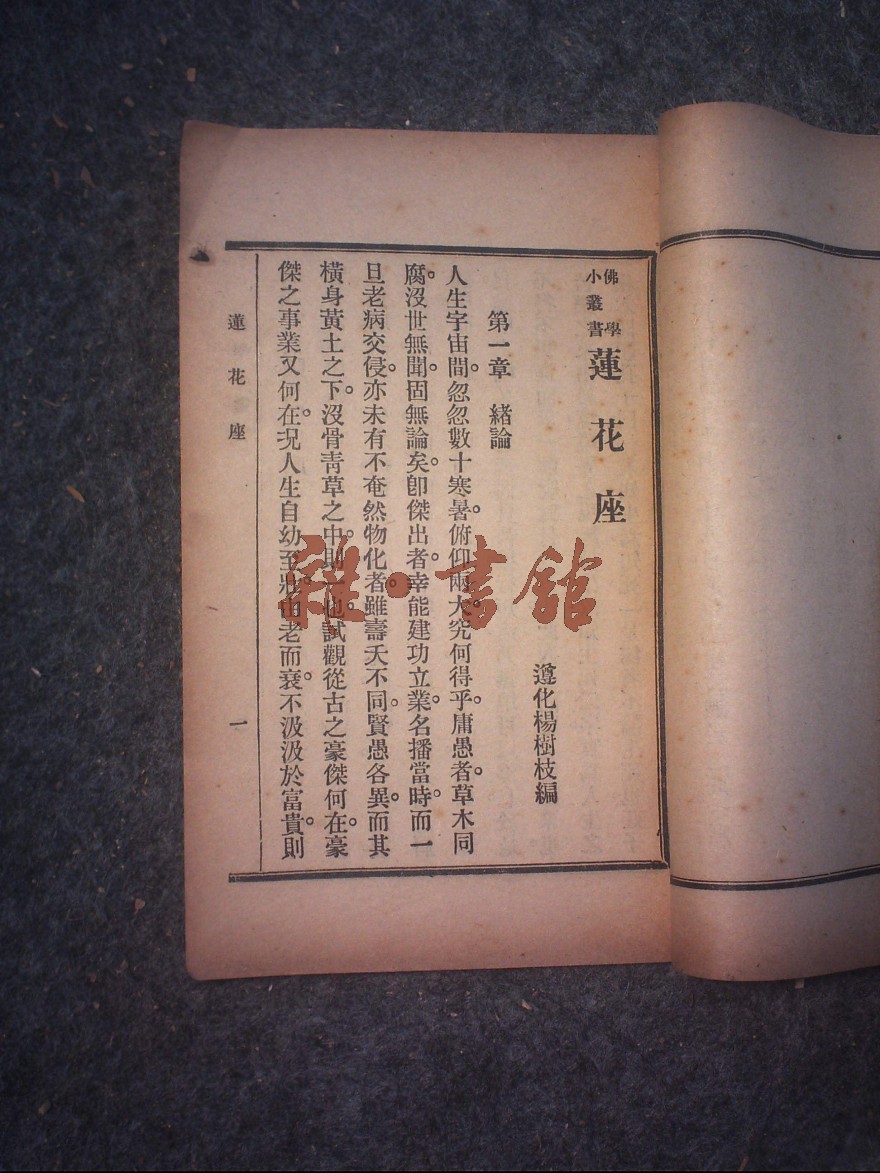 佛學小叢書 蓮花座
遵化楊樹枝編
第一章 緒論
人生宇宙間。忽忽數十寒暑。俯仰兩大。究何得乎。庸愚者。草木同
腐。沒世無聞。固無論矣。卽傑出者。幸能建功立業。名播當時。而一
旦老病交侵。亦未有不奄然物化者。雖壽夭不同。賢愚各異。而其
橫身黃土之下。沒骨靑草之中。則一也。試觀從古之豪傑何在。豪
傑之事業又何在。況人生自幼至壯。由老而衰。不汲汲於富貴。則
蓮花座 一
雜·書館